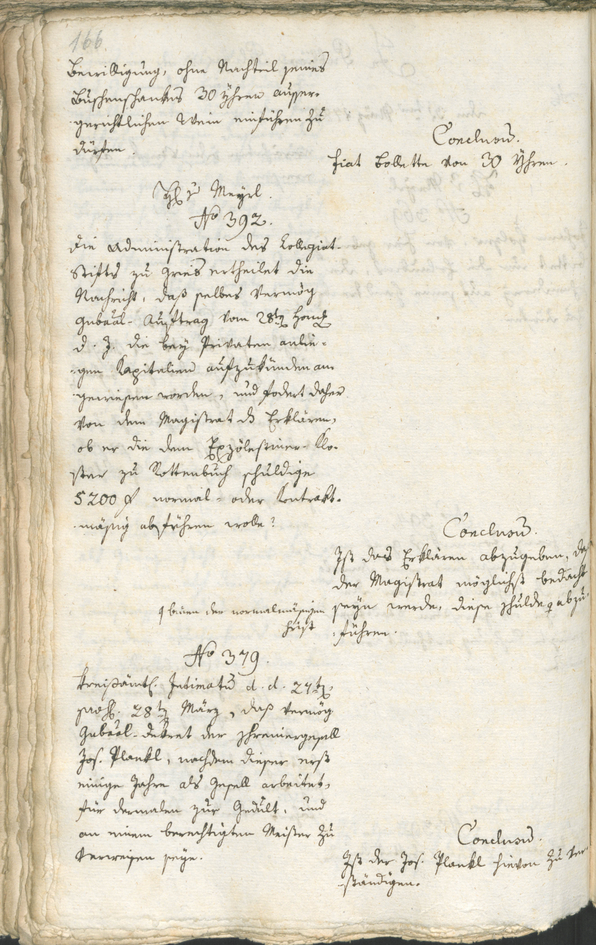 166.
Bewilligung, ohne Nachteil seines
Buschenschankes 30 Yhren ausser-
gerichtlichen Wein einführen zu
dürfen.
Conclusū.
fiat Bollette von 30 Yhren.
Meyrl.
No 392.
Die Administration des Kollegiat-
Stiftes zu Gries ertheilet die
Nachricht, daß selbes vermög
Gubāal-Auftrag vom 28tn
d. J. die bey Privaten anlie-
gen Kapitalien aufzukünden an-
gewiesen worden, und fodert daher
von dem Magistrat ds Erklären,
ob er die dem Exzölestiner-Klo-
ster zu Rottenbuch schuldige
5200 f normal- oder kontrakt-
mäsig abführen wolle?
Conclusū.
Ist das Erklären abzugeben, daß
der Magistrat möglichst bedacht
seyn werde, diese Schulde abzu-
führen.
binnen der normalmäsigen
Frist
No 379.
Kreisämtl. Intimatū d. d. 27tn,
28tn März, daß vermög
Gubāal-Dekret der Schreinergesell
Jos. Plankl, nachdem dieser erst
einige Jahre als Gesell arbeitet,
für dermalen zur Gedult, und
an einem berechtigten Meister zu
verweisen seye.
Conclusū.
Ist der Jos. Plankl hievon zu ver-
ständigen.